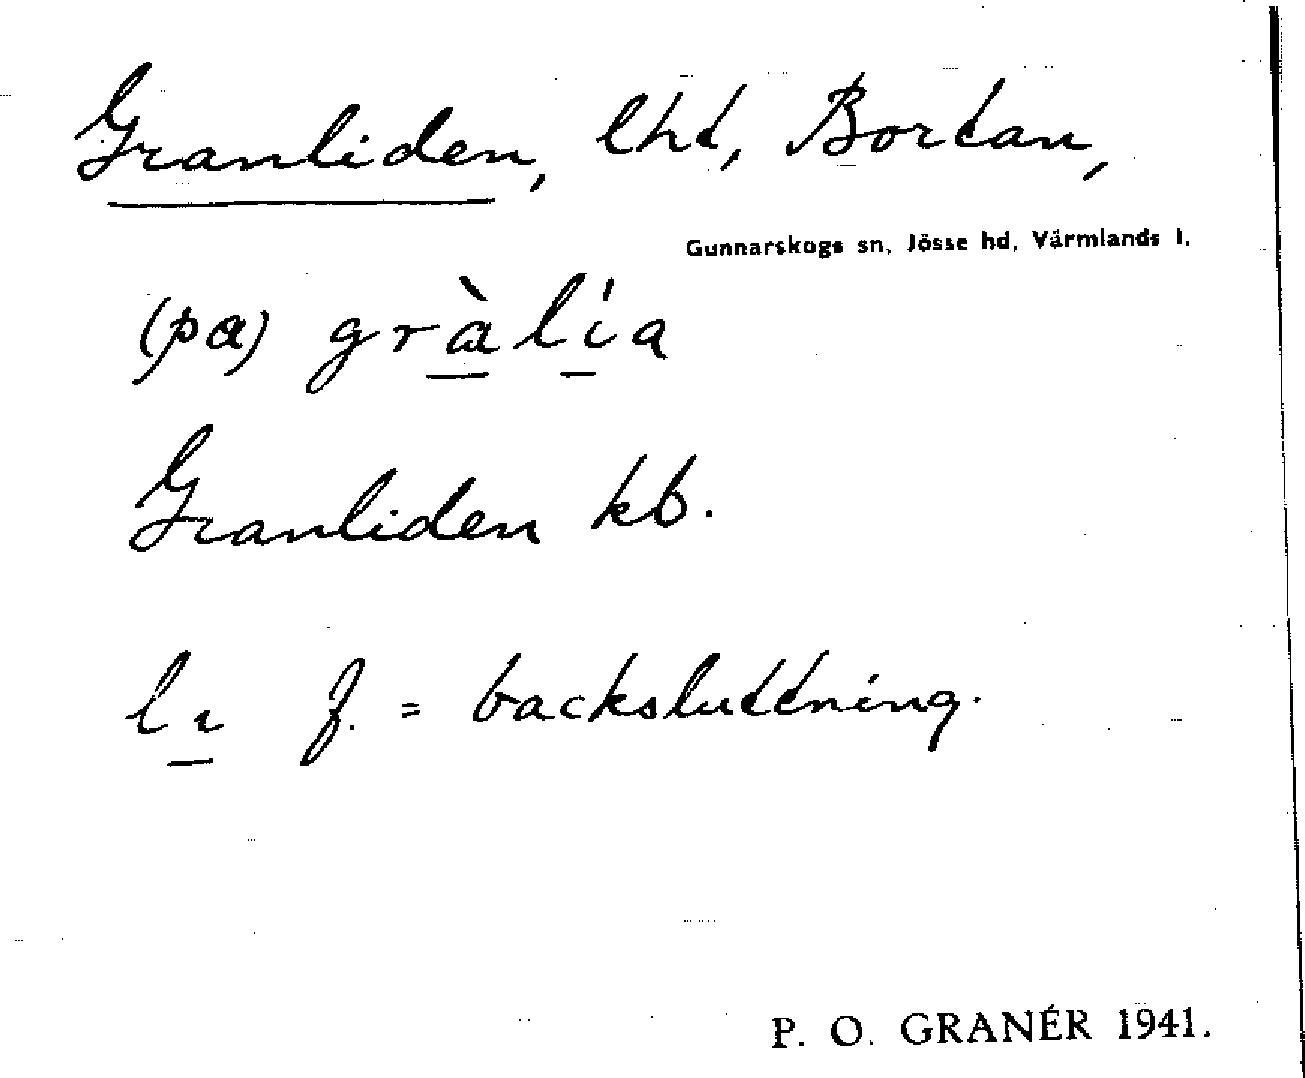 Granliden, lht, Bortan,
Gunnarskogs sn, Jösse hd, Värmlands l.
(pɑ) grɑ̀lía
Granliden kb.
lɩ f. = backsluttning.
P. O. GRANÉR 1941.